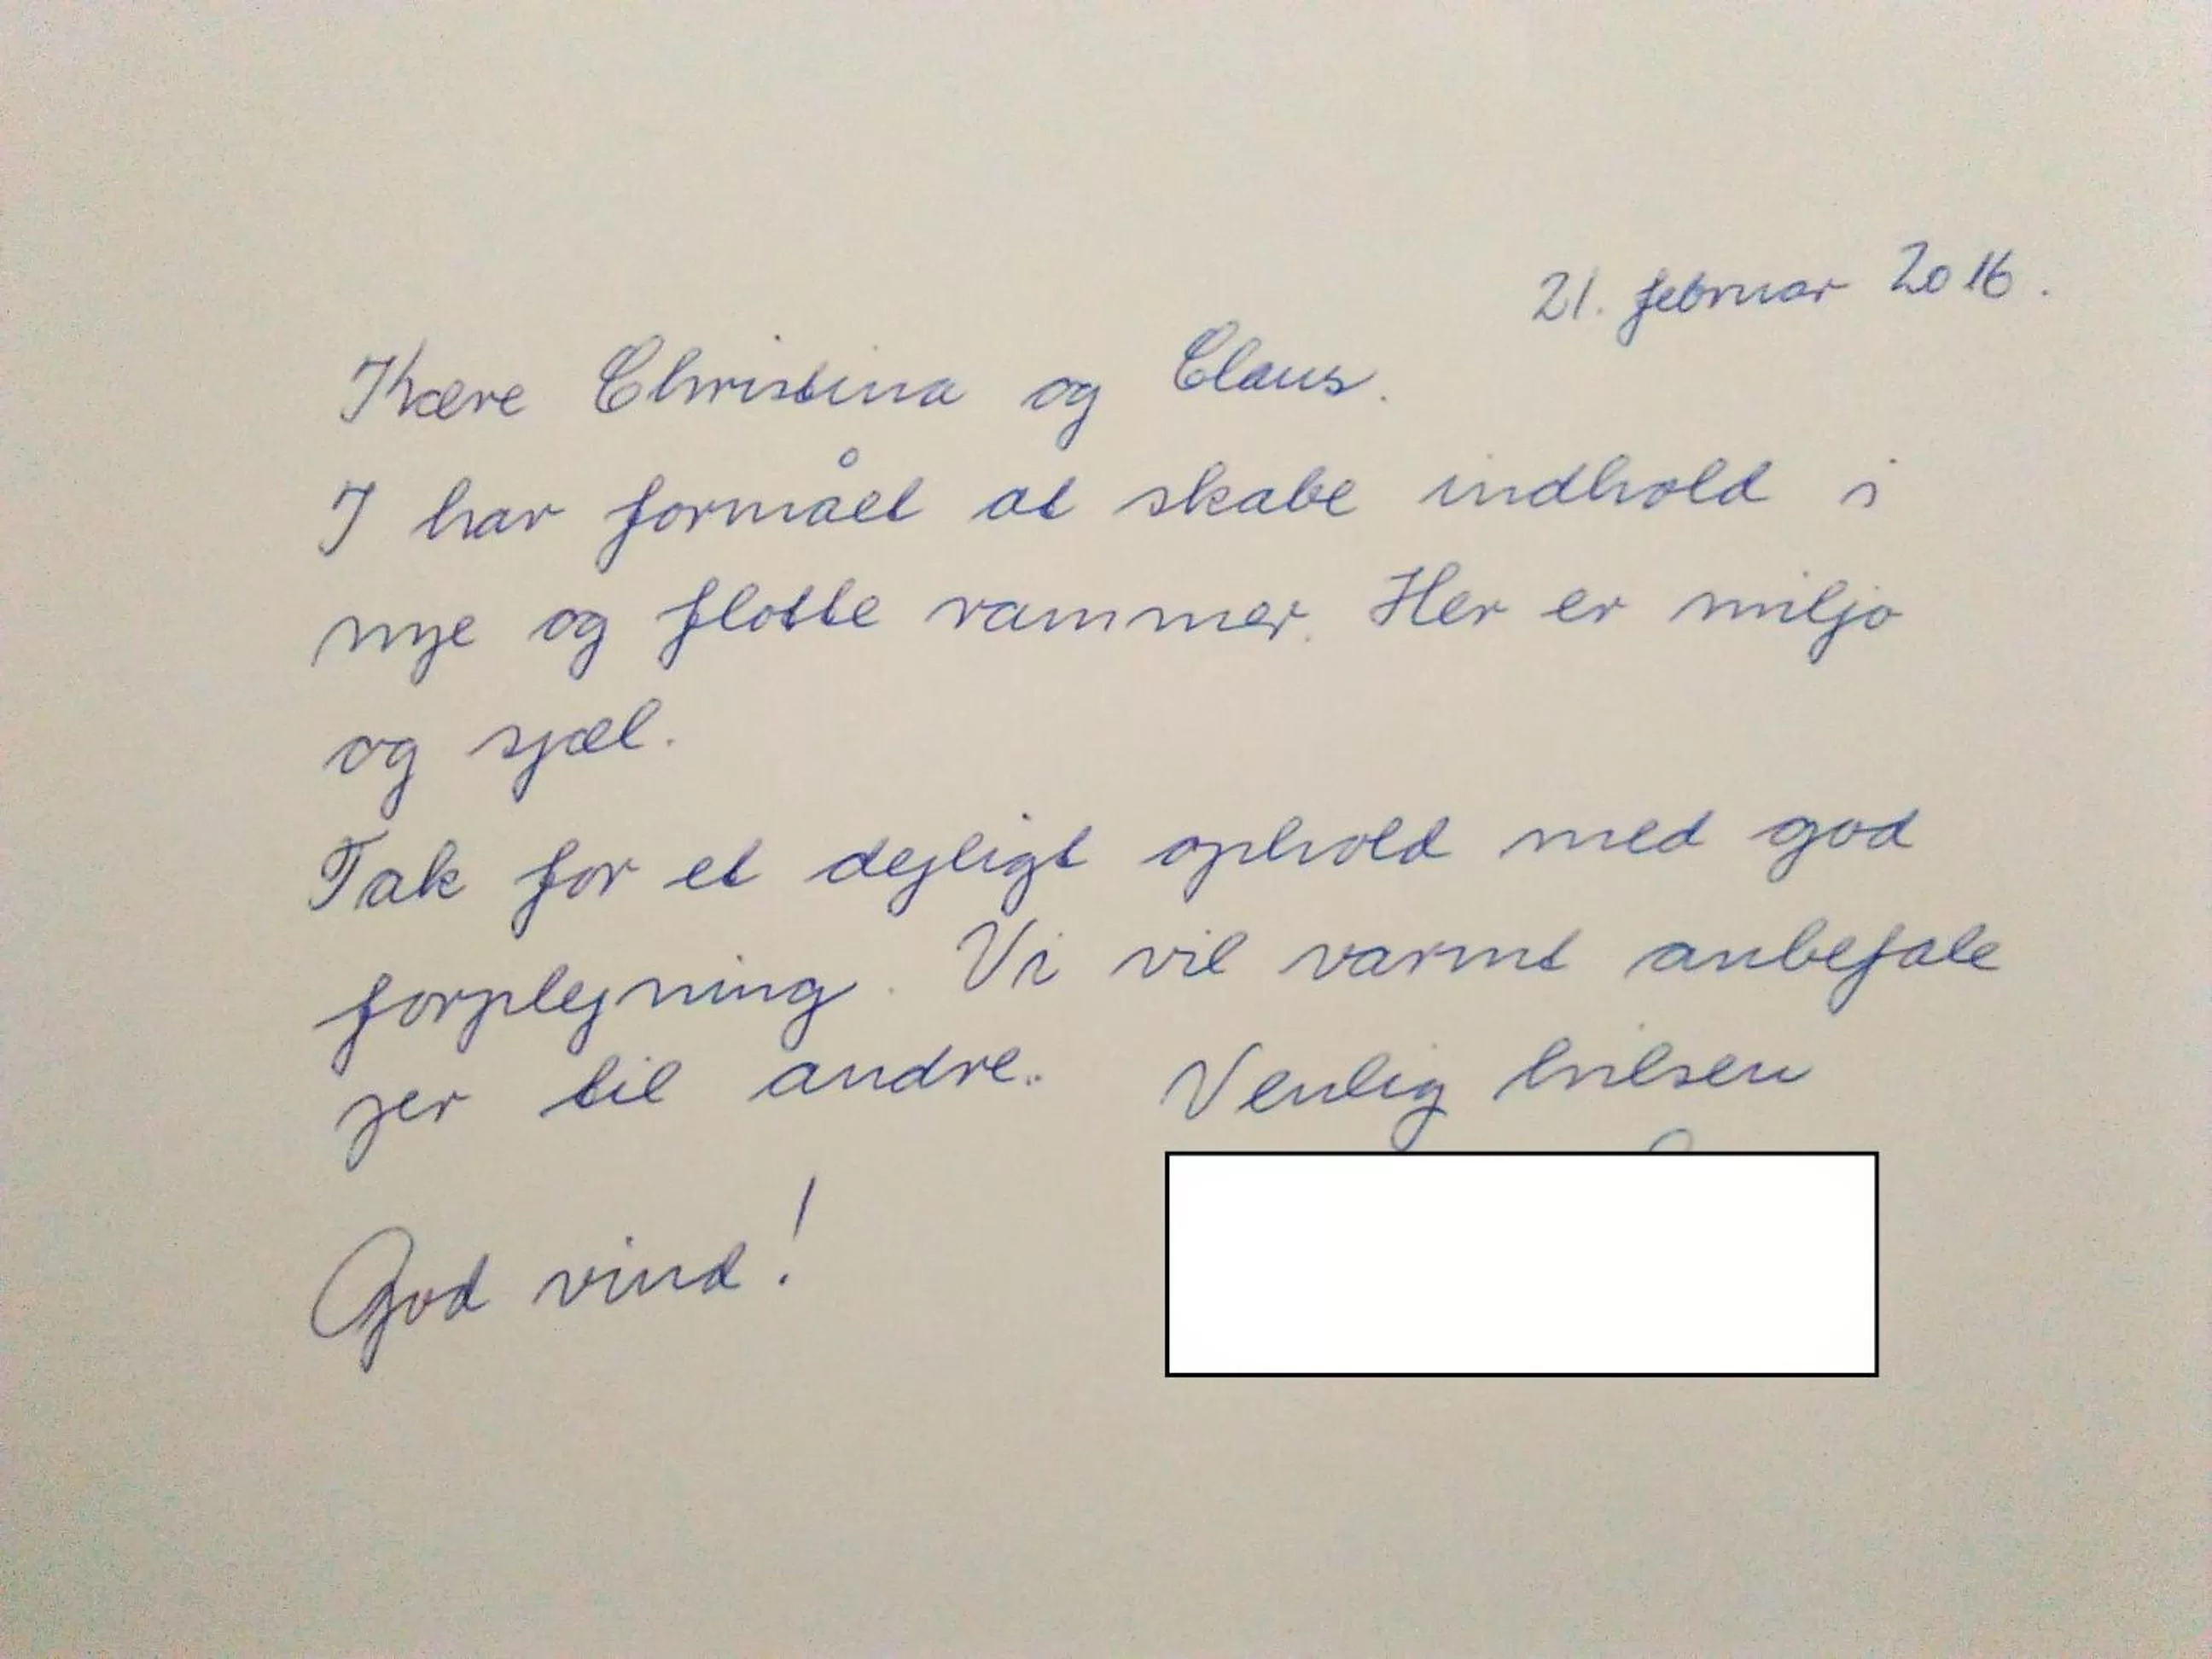 21. februar 2016.
Kære Christina og Claus.
I har formået at skabe indhold i
nye og flotte rammer. Her er miljø
og sjæl.
Tak for et dejligt ophold med god
forplejning. Vi vil varmt anbefale
jer til andre. Venlig hilsen
God vind!